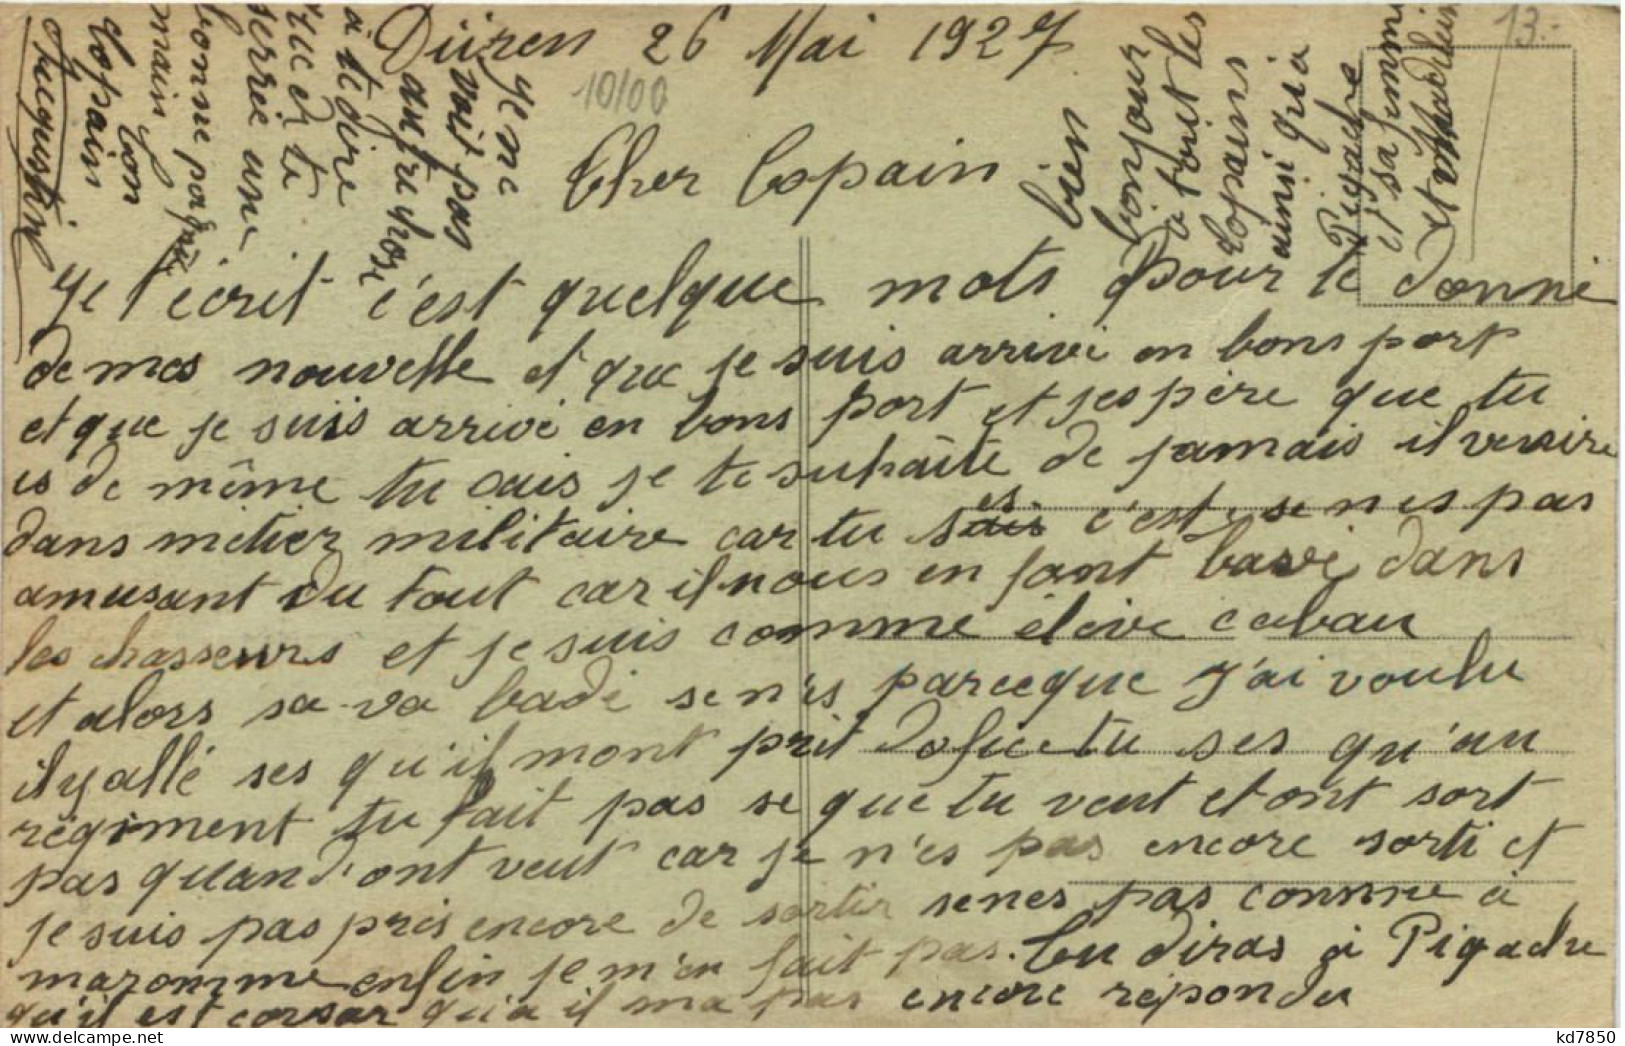 Düren 26 Mai 1927
10/00
13.-
Cher Copain
Je t'écrit c'est quelque mots pour te donné
de mes nouvelle et que je suis arrivé en bons port
et que je suis arrivé en bons port et j'espère que tu
es de même tu sais je te suhaite de jamais
dans métier militaire car tu sais es c'est se n'es pas
amusant du tout car il nous en font bavé dans
les chasseurs et je suis comme élève
et alors sa va badé se n'es parceque j'ai voulu
il y allé ses qu'il mont prit dofice tu ses qu'au
régiment tu fait pas se que tu veut et ont sort
pas quand ont veut car je n'es pas encore sorti et
je suis pas près encore de sortir senes pas comme à
maromme enfin je m'en fait pas. Tu diras à Pigache
qu'il est corsar qu'a il ma pas encore répondu
bien
bonjour
à tout les
copains
ainsi qu'à
Pigache
et sa femme
et Madelein
Je ne
voit pas
autre chose
à te dire
que de te
serrée une
bonne
main
ton
Copain
Augustin
kd7850